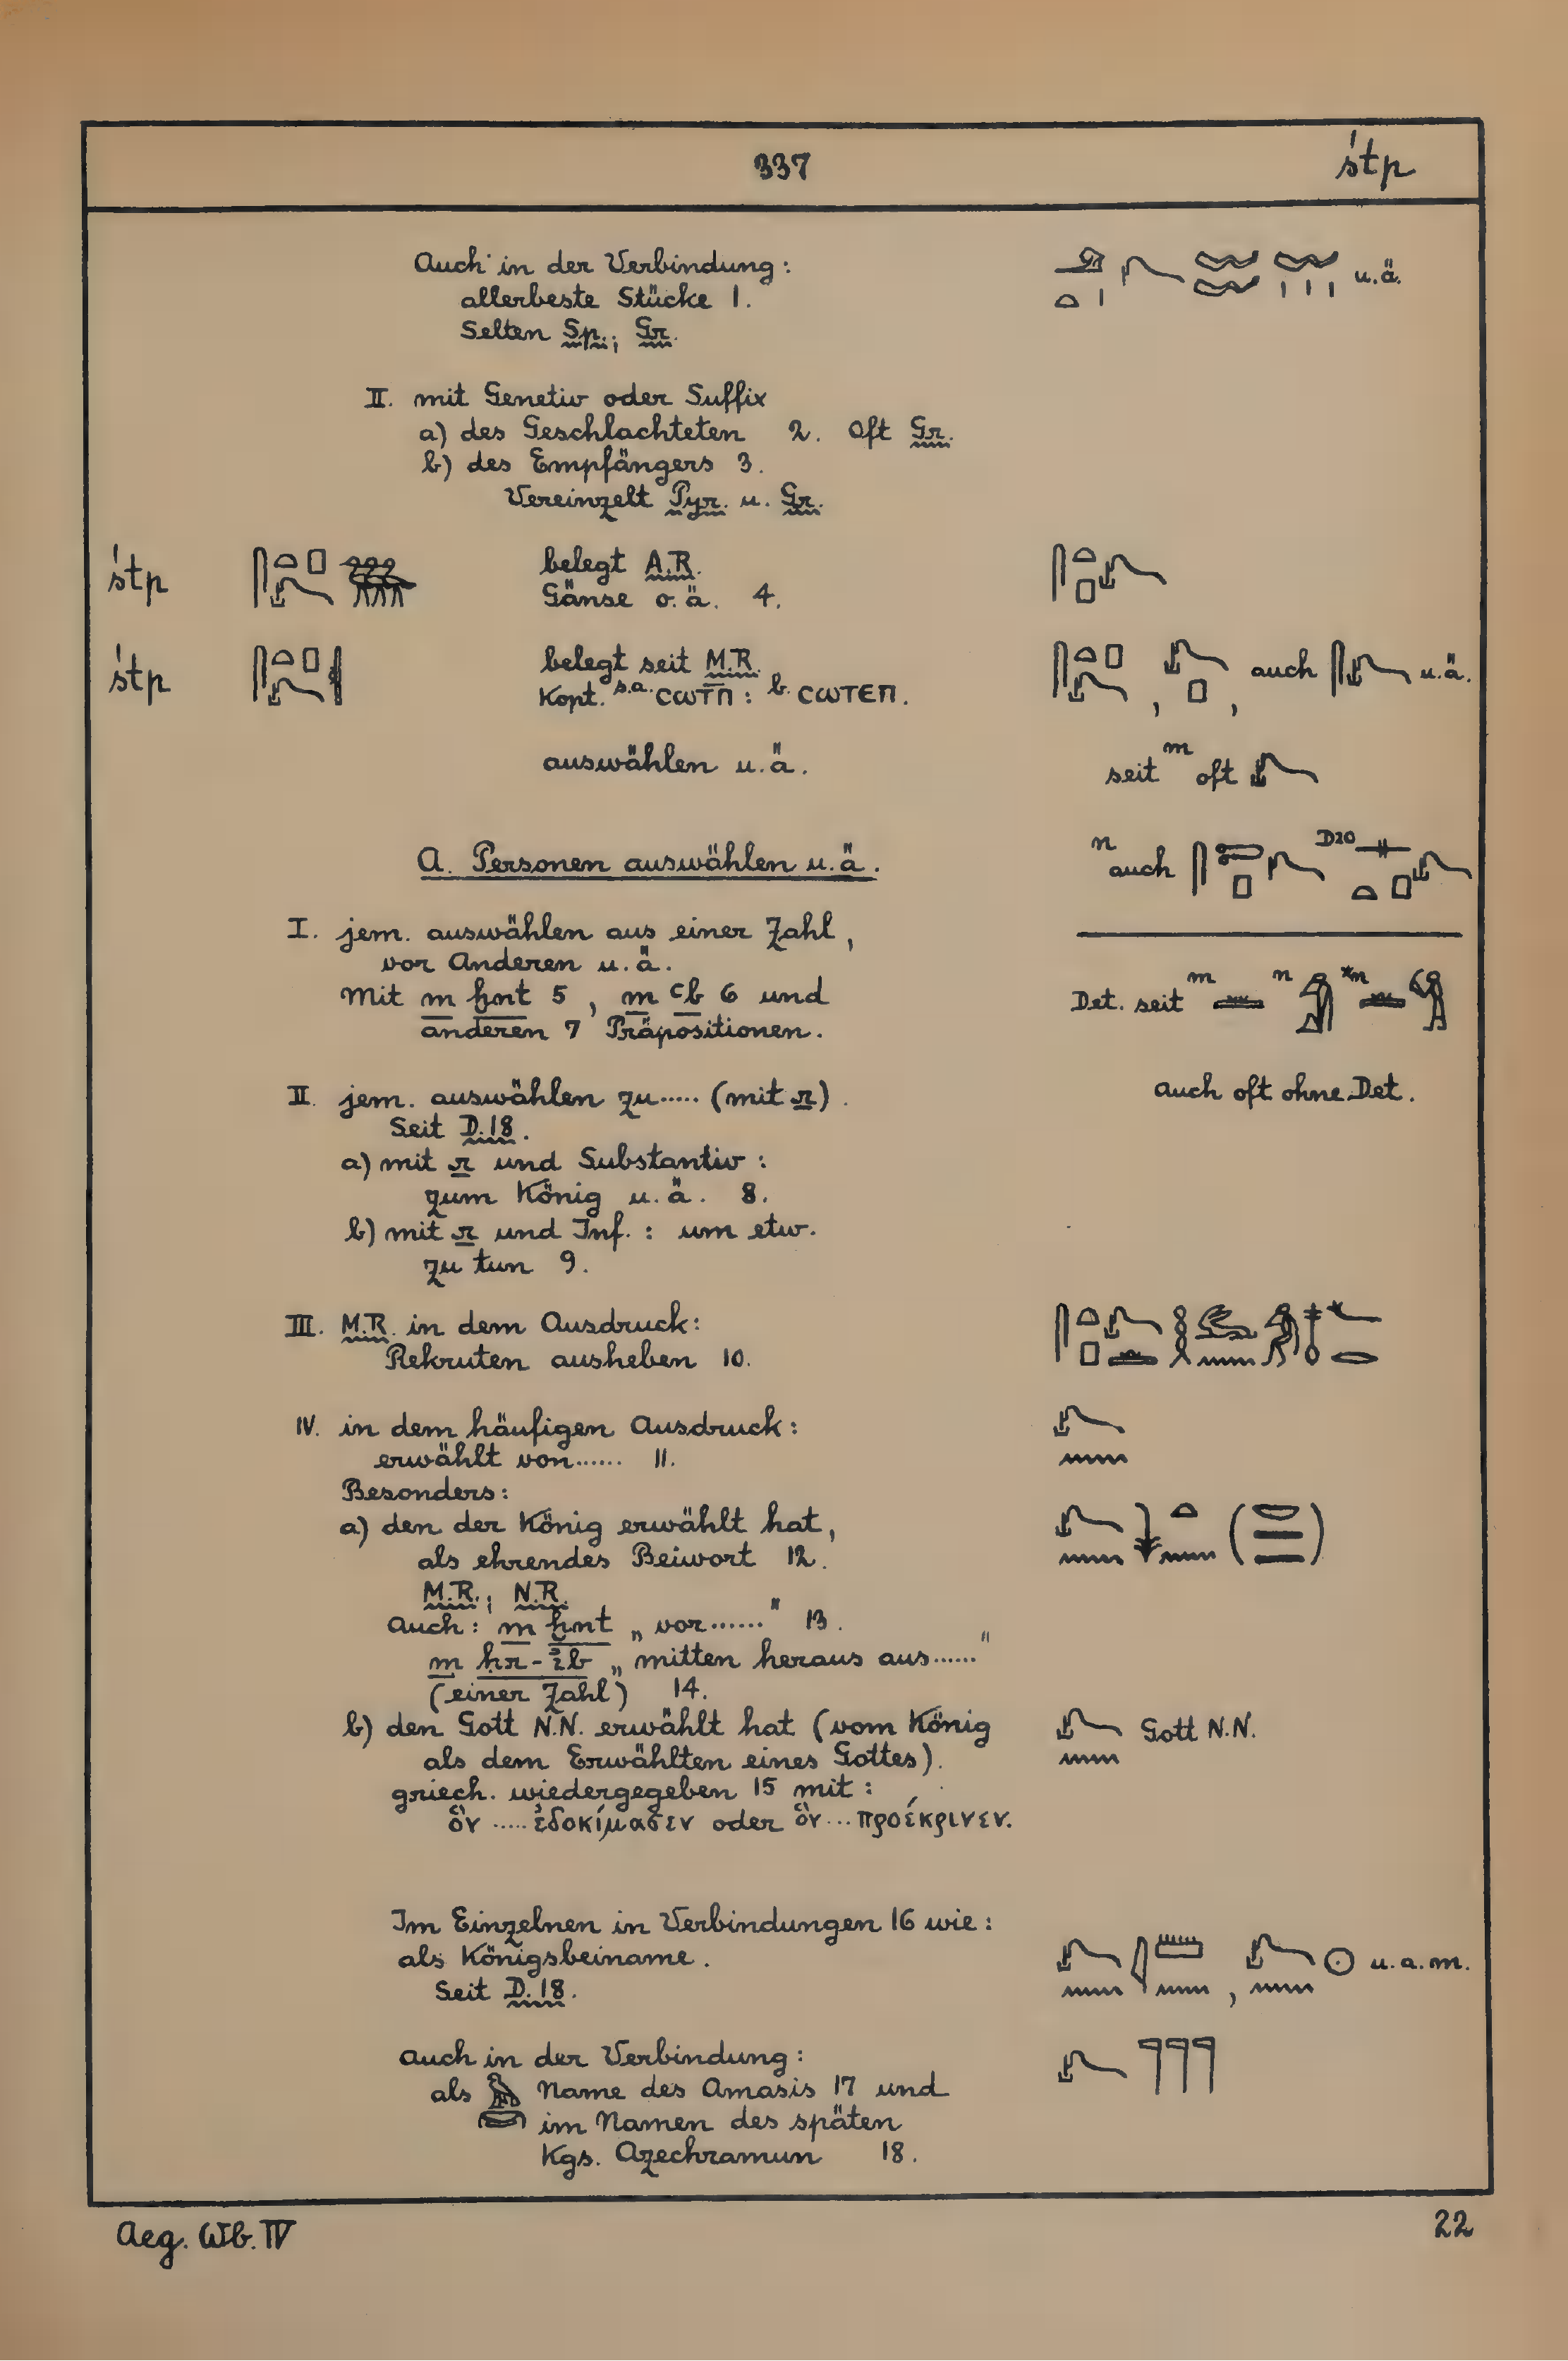 337
śtp
Auch in der Verbindung:
allerbeste Stücke 1.
u.ä.
Selten Sp.; Gr.
II. mit Genetiv oder Suffix
a) des Geschlachteten 2. Oft Gr.
b) des Empfängers 3.
Vereinzelt Pyr. u. Gr.
śtp
belegt A.R.
Gänse o.ä. 4.
śtp
belegt seit M.R.
Kopt. s.a. ⲥⲱⲧⲡ̄ : b. ⲥⲱⲧⲉⲡ.
, , auch u.ä.
auswählen u.ä.
seit m oft
A. Personen auswählen u.ä.
n auch D20
I. jem. auswählen aus einer Zahl,
vor Anderen u.ä.
Mit m ḫnt 5, m ꜥb 6 und
anderen 7 Präpositionen.
Det. seit m n *n
II. jem. auswählen zu..... (mit r).
auch oft ohne Det.
Seit D.18.
a) mit r und Substantiv:
zum König u.ä. 8.
b) mit r und Inf.: um etw.
zu tun 9.
III. M.R. in dem Ausdruck:
Rekruten ausheben 10.
IV. in dem häufigen Ausdruck:
erwählt von...... 11.
Besonders:
a) den der König erwählt hat,
als ehrendes Beiwort 12.
M.R.; N.R.
Auch: m ḫnt „vor......" 13.
m ḥr-ỉb „mitten heraus aus......"
(einer Zahl) 14.
b) den Gott N.N. erwählt hat (vom König
Gott N.N.
als dem Erwählten eines Gottes).
griech. wiedergegeben 15 mit:
ὃν ..... ἐδοκίμασεν oder ὃν ... προέκρινεν.
Im Einzelnen in Verbindungen 16 wie:
als Königsbeiname.
, u.a.m.
Seit D.18.
Auch in der Verbindung:
als Name des Amasis 17 und
im Namen des späten
Kgs. Azechramun 18.
Aeg. Wb. IV
22